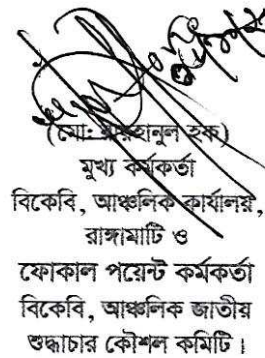 (মো: রায়হানুল হক)
মুখ্য কর্মকর্তা
বিকেবি, আঞ্চলিক কার্যালয়,
রাঙ্গামাটি ও
ফোকাল পয়েন্ট কর্মকর্তা
বিকেবি, আঞ্চলিক জাতীয়
শুদ্ধাচার কৌশল কমিটি।